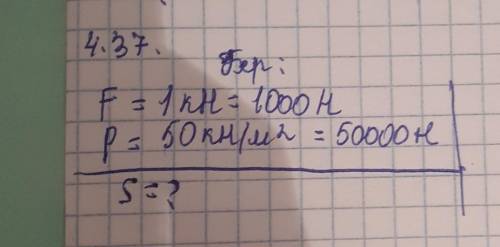 4.37.
Бер:
F = 1 кН = 1000 Н
P = 50 кН/м2 = 50000 Н
S = ?